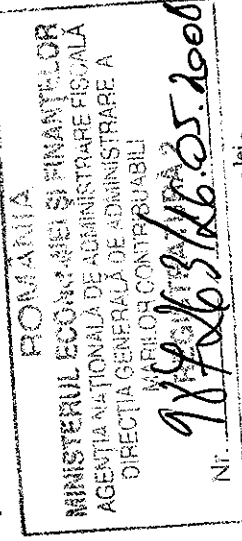 ROMÂNIA
MINISTERUL ECONOMIEI ȘI FINANȚELOR
AGENȚIA NAȚIONALĂ DE ADMINISTRARE FISCALĂ
DIRECȚIA GENERALĂ DE ADMINISTRARE A
MARILOR CONTRIBUABILI
REGISTRATURA 2
Nr. 984263/26.05.2008